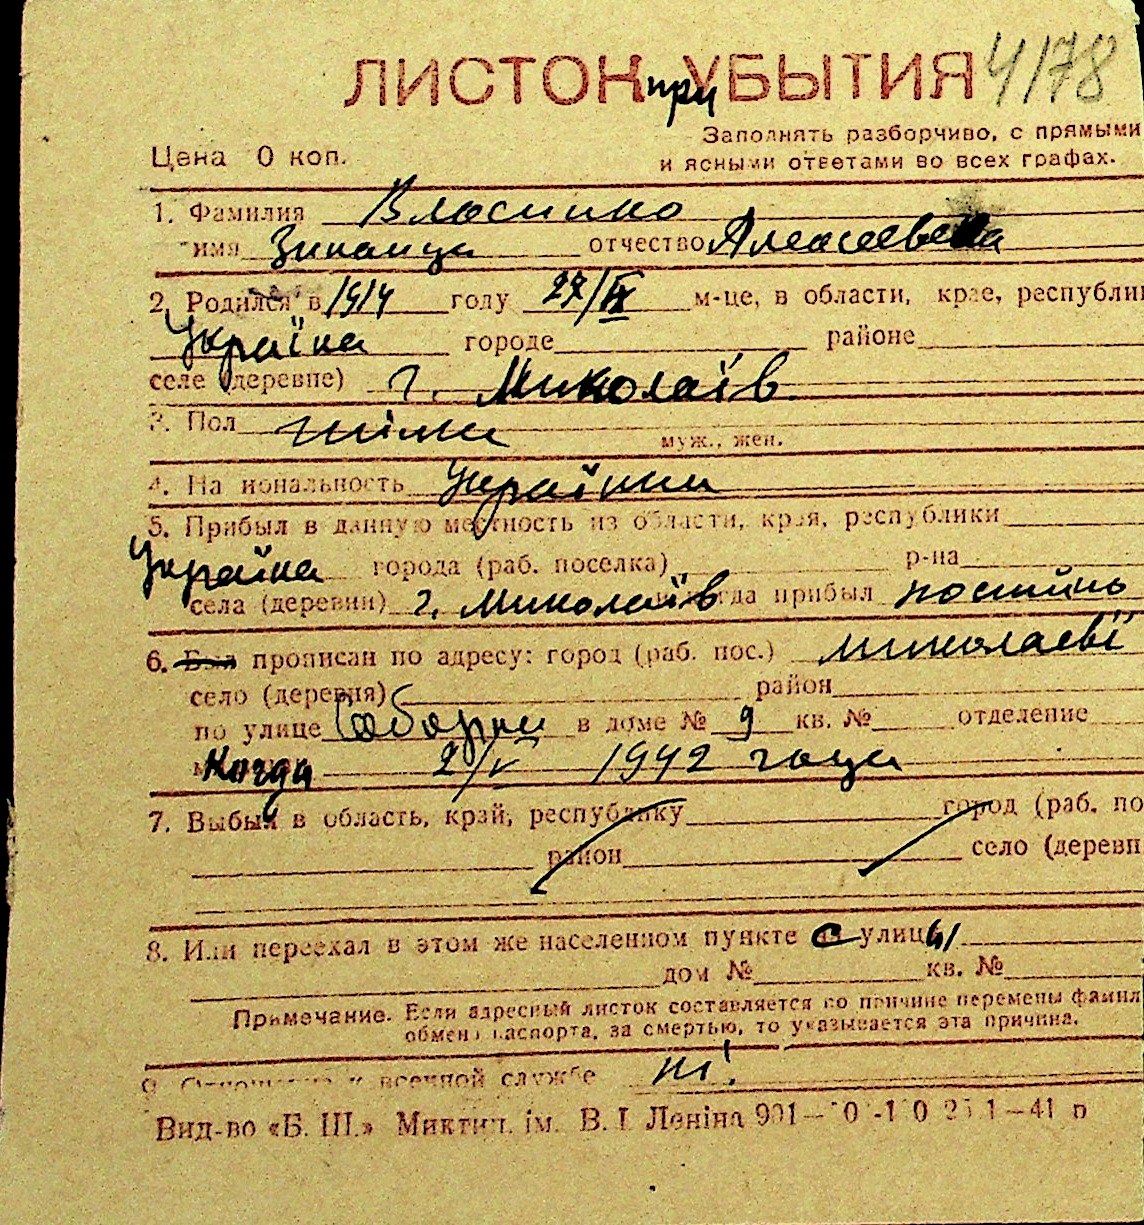 ЛИСТОК при УБЫТИЯ 4178
Заполнять разборчиво, с прямыми
Цена 0 коп. и ясными ответами во всех графах.
1. Фамилия Власенко
имя Зинаида отчество Алексеевна
2. Родился в 1914 году 27/IX м-це, в области, крае, республи
Україна городе районе
селе (деревне) г. Миколаїв.
3. Пол муж., жен.
4. Национальность Українка
5. Прибыл в данную местность из области, края, республики
Україна города (раб. поселка) р-на
села (деревни) г. Миколаїв когда прибыл постійно
6. Был прописан по адресу: город (раб. пос.) Миколаєві
село (деревня) район
по улице Соборна в доме № 9 кв. № отделение
Когда 2/V 1942 года
7. Выбыл в область, край, республику город (раб. по
район село (деревн
8. Или переехал в этом же населенном пункте с улицы
дом № кв. №
Примечание. Если адресный листок составляется по причине перемены фамил
обмена паспорта, за смертью, то указывается эта причина.
9. Отношение к военной службе ні!
Вид-во «Б. Ш.» Миктип. ім. В. І. Леніна